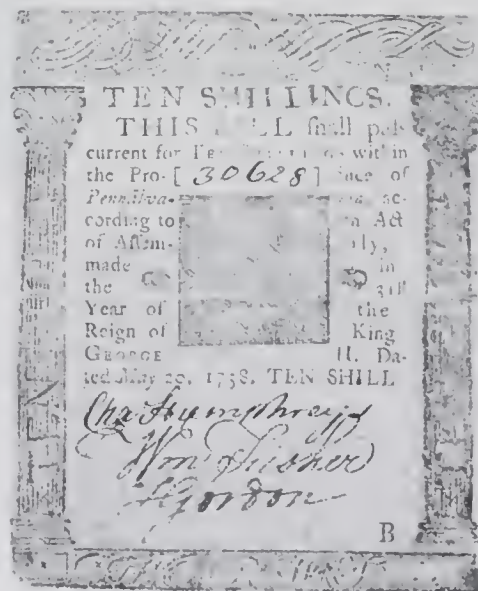 TEN SHILLINGS.
THIS BILL shall pass
current for TEN SHILLINGS within
the Pro- [ 30628 ] ince of
Pennsilva- ac-
cording to an Act
of Assem- ly,
made in
the 31st
Year of the
Reign of King
GEORGE II. Da-
ted May 20, 1758. TEN SHILL
Cha Humphreys
Wm Fisher
Gordon
B